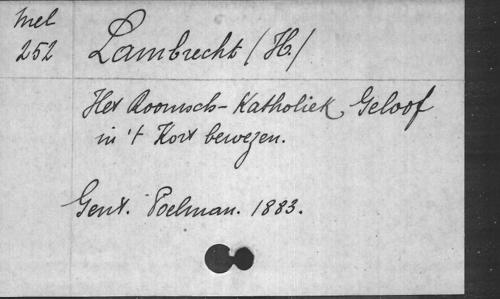 Mel
252
Lambrecht (H)
Het Roomsch-Katholiek Geloof
in 't Kort bewezen.
Gent. Poelman. 1883.